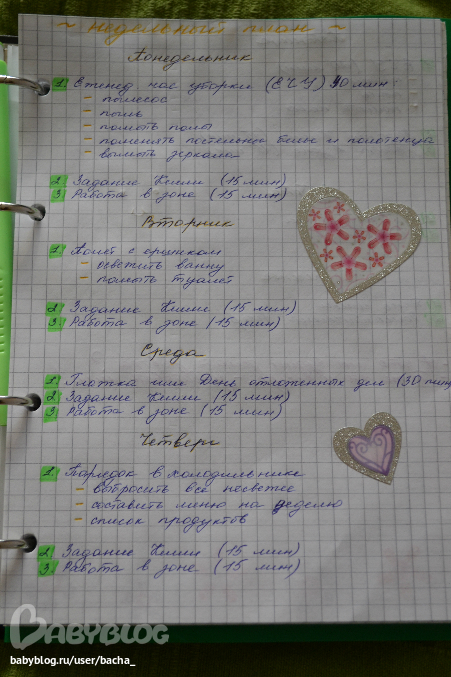 ~ недельный план ~
Понедельник
1. Еженед час уборки (ЕЧУ) 30 мин:
- пылесос
- пыль
- помыть полы
- поменять постельное белье и полотенца
- вымыть зеркала
2. Задание Келли (15 мин)
3. Работа в зоне (15 мин)
Вторник
1. Полёт с
- освежить ванну
- помыть туалет
2. Задание Келли (15 мин)
3. Работа в зоне (15 мин)
Среда
1. Глажка или День отложенных дел (30 мин
2. Задание Келли (15 мин)
3. Работа в зоне (15 мин)
Четверг
1. Порядок в холодильнике
- выбросить все несвежее
- составить меню на неделю
- список продуктов
2. Задание Келли (15 мин)
3. Работа в зоне (15 мин)
BABYBLOG
babyblog.ru/user/bacha_